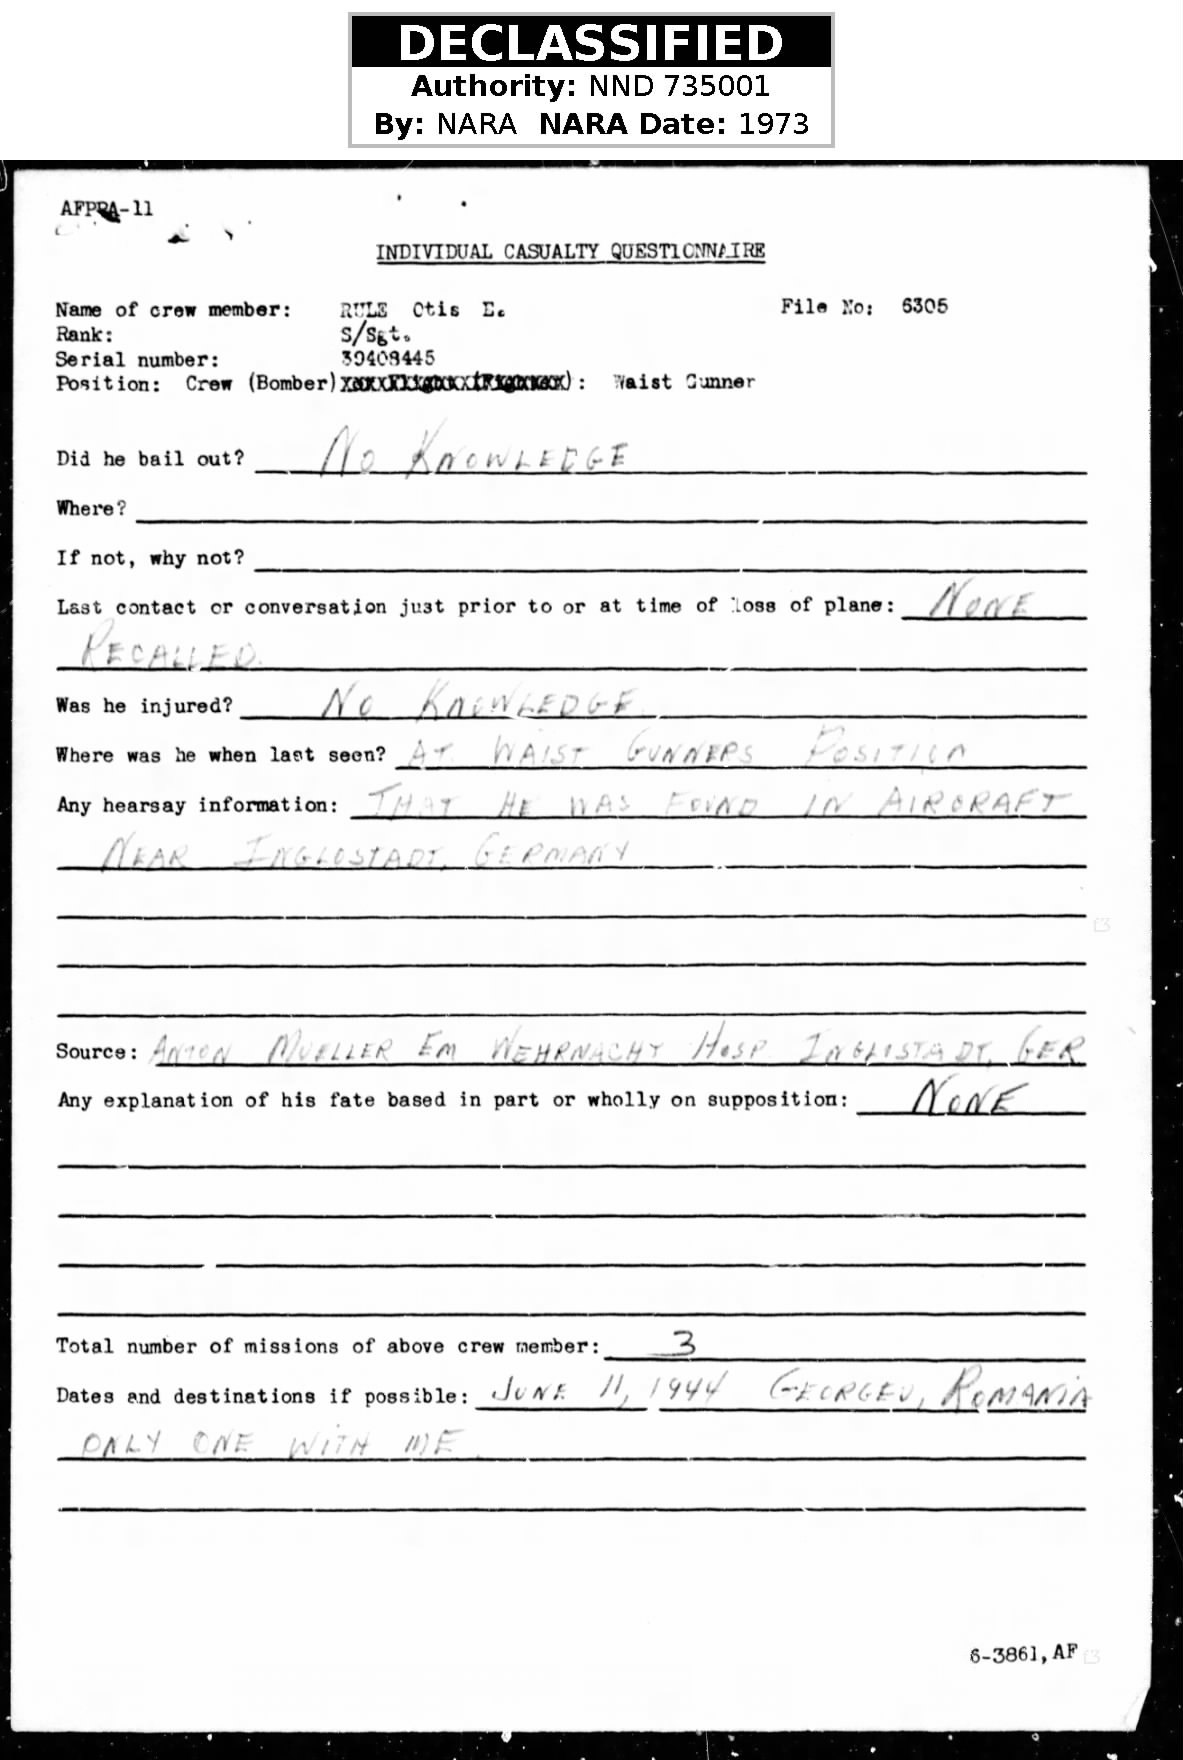 DECLASSIFIED
Authority: NND 735001
By: NARA NARA Date: 1973
AFPPA-11
INDIVIDUAL CASUALTY QUESTIONNAIRE
Name of crew member: RULE Otis E. File No: 6305
Rank: S/Sgt.
Serial number: 39408445
Position: Crew (Bomber) : Waist Gunner
Did he bail out? NO KNOWLEDGE
Where?
If not, why not?
Last contact or conversation just prior to or at time of loss of plane: NONE
RECALLED.
Was he injured? NO KNOWLEDGE
Where was he when last seen? AT WAIST GUNNERS POSITION
Any hearsay information: THAT HE WAS FOUND IN AIRCRAFT
NEAR INGLOSTADT, GERMANY
Source: ANTON MUELLER EM WEHRNACHT HOSP. INGLISTADT, GER
Any explanation of his fate based in part or wholly on supposition: NONE
Total number of missions of above crew member: 3
Dates and destinations if possible: JUNE 11, 1944 GEORGEU, ROMANIA
ONLY ONE WITH ME
6-3861, AF